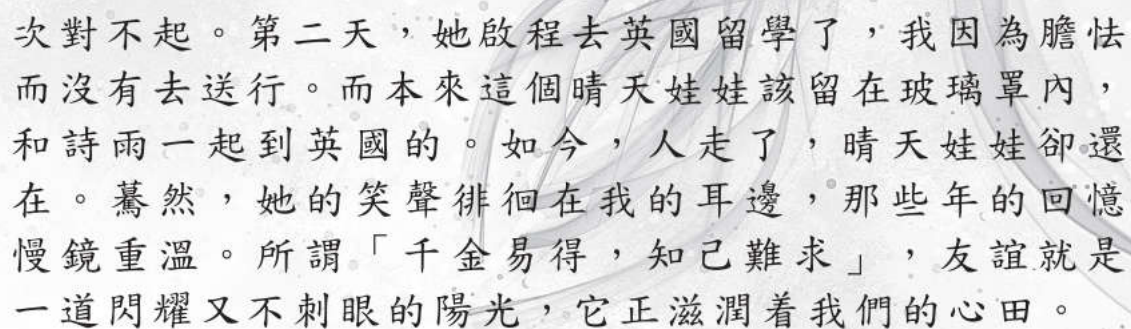 次對不起。第二天，她啟程去英國留學了，我因為膽怯
而沒有去送行。而本來這個晴天娃娃該留在玻璃罩內，
和詩雨一起到英國的。如今，人走了，晴天娃娃卻還
在。驀然，她的笑聲徘徊在我的耳邊，那些年的回憶
慢鏡重溫。所謂「千金易得，知己難求」，友誼就是
一道閃耀又不刺眼的陽光，它正滋潤着我們的心田。